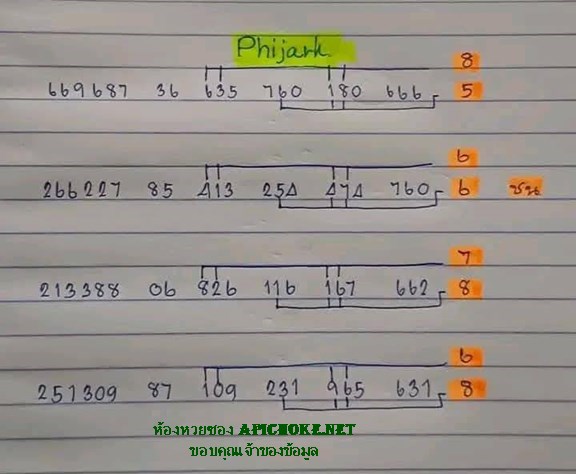 Phijark.
8
669687 36 635 760 180 666 5
6
266227 85 413 254 474 760 6 ชน
7
213388 06 826 116 167 662 8
6
251309 87 109 231 965 631 8
ห้องหวยซอง APICHOKE.NET
ขอบคุณเจ้าของข้อมูล